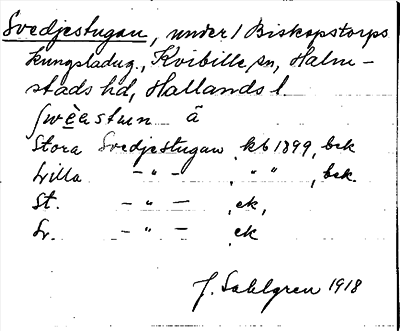 Svedjestugan, under 1 Biskopstorps
kungsladug., Kvibille sn, Halm-
stads hd, Hallands l.
Stora Svedjestugan kb 1899, bek
Lilla - " - " " , bek.
St. - " - ek,
L. - " - ek
J. Sahlgren 1918